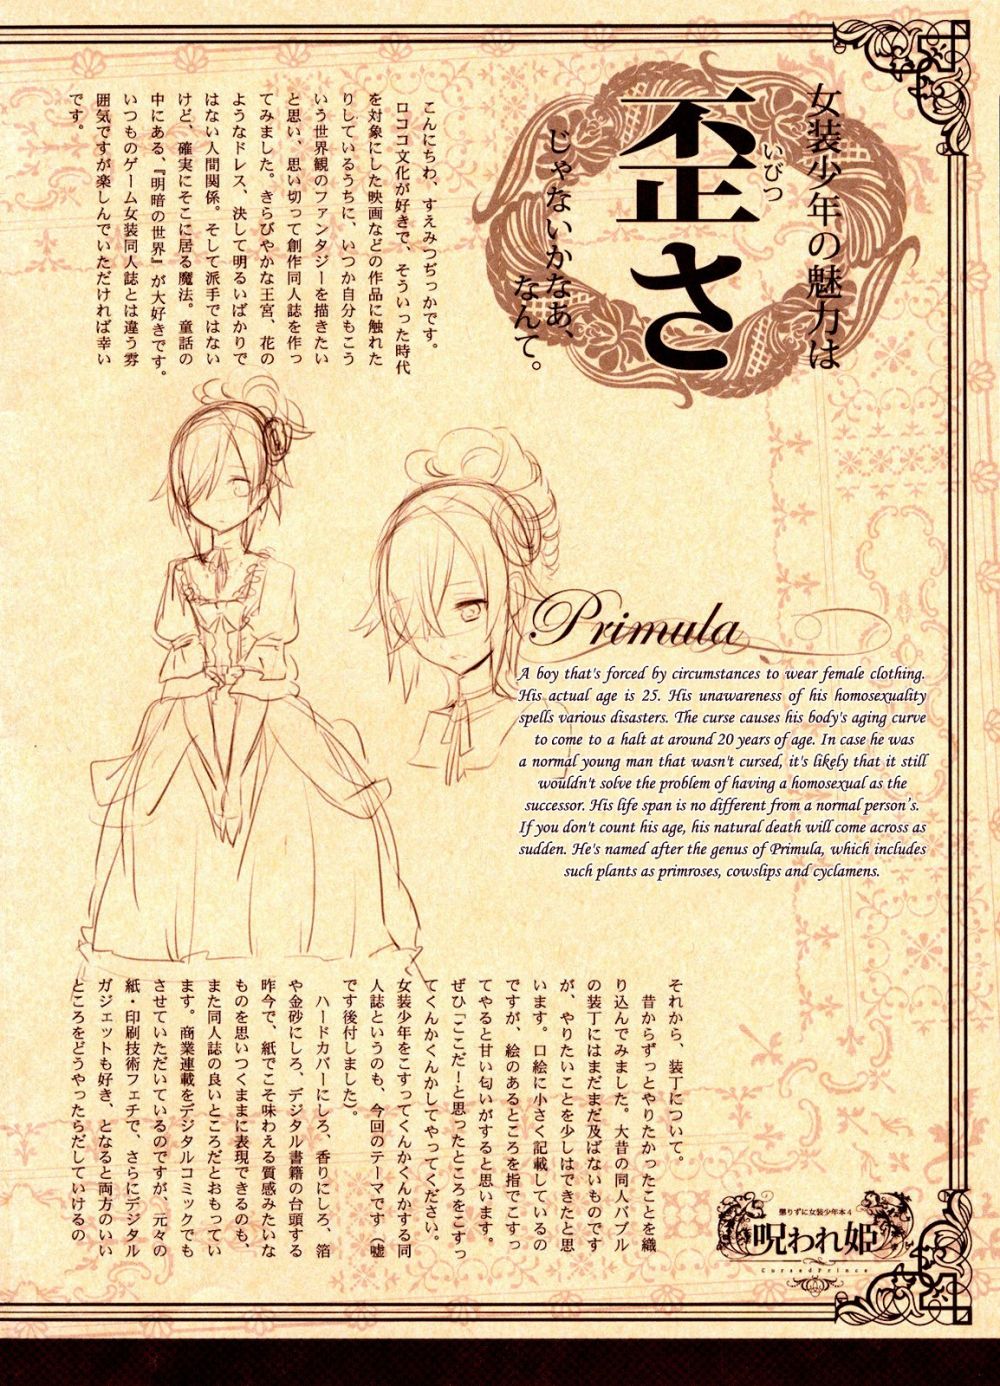 女装少年の魅力は
いびつ
歪さ
じゃないかなあ、
なんて。
こんにちわ、すえみつぢっかです。
ロココ文化が好きで、そういった時代
を対象にした映画などの作品に触れた
りしているうちに、いつか自分もこう
いう世界観のファンタジーを描きたい
と思い、思い切って創作同人誌を作っ
てみました。きらびやかな王宮、花の
ようなドレス、決して明るいばかりで
はない人間関係。そして派手ではない
けど、確実にそこに居る魔法。童話の
中にある、『明暗の世界』が大好きです。
いつものゲーム女装同人誌とは違う雰
囲気ですが楽しんでいただければ幸い
です。
Primula
A boy that's forced by circumstances to wear female clothing.
His actual age is 25. His unawareness of his homosexuality
spells various disasters. The curse causes his body's aging curve
to come to a halt at around 20 years of age. In case he was
a normal young man that wasn't cursed, it's likely that it still
wouldn't solve the problem of having a homosexual as the
successor. His life span is no different from a normal person's.
If you don't count his age, his natural death will come across as
sudden. He's named after the genus of Primula, which includes
such plants as primroses, cowslips and cyclamens.
それから、装丁について。
昔からずっとやりたかったことを織
り込んでみました。大昔の同人バブル
の装丁にはまだまだ及ばないものです
が、やりたいことを少しはできたと思
います。口絵に小さく記載しているの
ですが、絵のあるところを指でこすっ
てやると甘い匂いがすると思います。
ぜひ「ここだ!と思ったところをこすっ
てくんかくんかしてやってください。
女装少年をこすってくんかくんかする同
人誌というのも、今回のテーマです(嘘
です後付しました)。
ハードカバーにしろ、香りにしろ、箔
や金砂にしろ、デジタル書籍の台頭する
昨今で、紙でこそ味わえる質感みたいな
ものを思いつくままに表現できるのも、
また同人誌の良いところだとおもってい
ます。商業連載をデジタルコミックでも
させていただいているのですが、元々の
紙・印刷技術フェチで、さらにデジタル
ガジェットも好き、となると両方のいい
ところをどうやったらだしていけるの
懲りずに女装少年本4
呪われ姫
CursedPrince